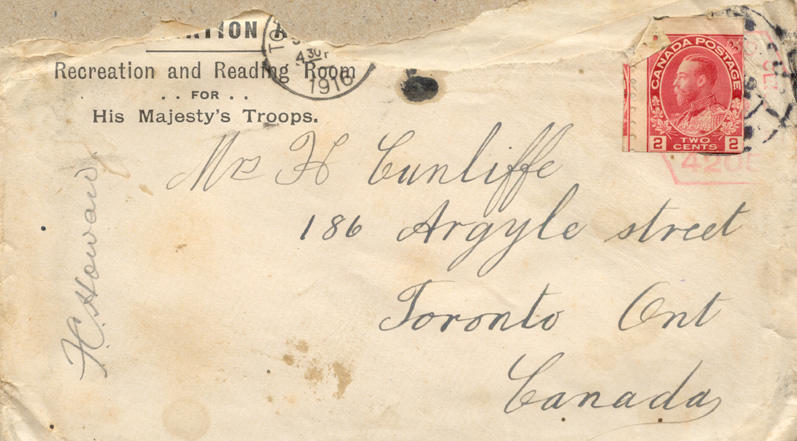 Recreation and Reading Room
. . FOR . .
His Majesty's Troops.
TO
4 30
1916
CANADA POSTAGE
2 TWO CENTS 2
H Cunliffe
186 Argyle street
Toronto Ont
Canada
H. Howard